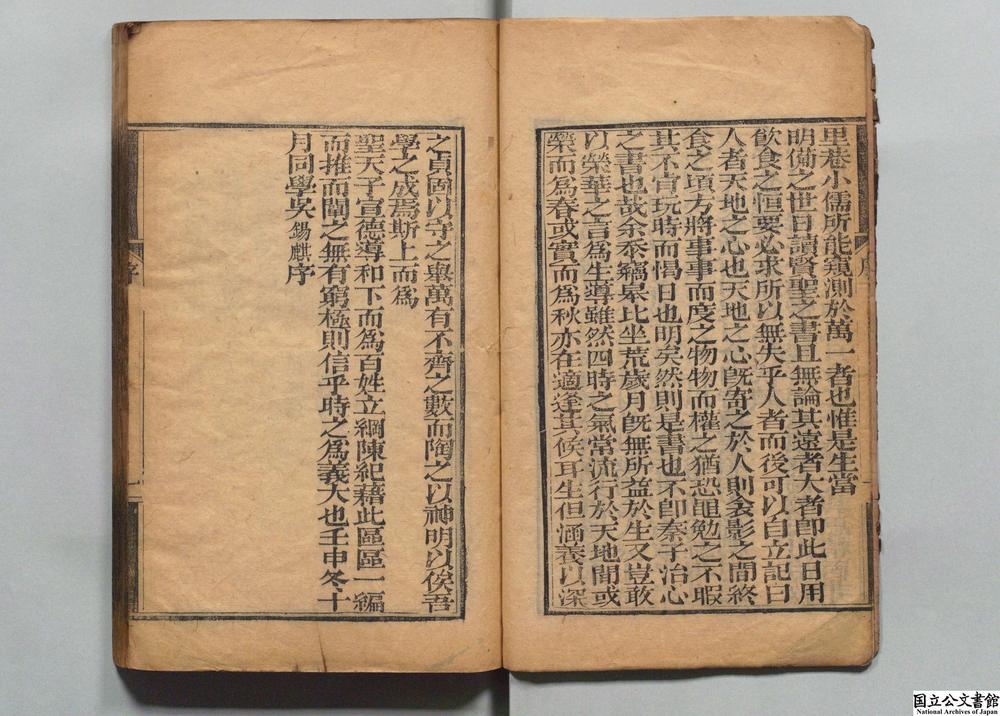 里巷小儒所能窺測於萬一者也惟是生當
明備之世日讀賢聖之書且無論其遠者大者卽此日用
飲食之恒要必求所以無失乎人者而後可以自立記曰
人者天地之心也天地之心旣寄之於人則衾影之間終
食之頃方將事事而度之物物而權之猶恐黽勉之不暇
其不官玩時而愒日也明矣然則是書也不卽秦子治心
之書也哉余忝竊皋比坐荒歲月旣無所益於生又豈敢
以榮華之言爲生導雖然四時之氣常流行於天地間或
榮而爲春或實而爲秋亦在適逢其候耳生但涵義以深
序
之貞固以守之舉萬有不齊之數而陶之以神明以俟吾
學之成焉斯上而爲
聖天子宣德導和下而爲百姓立綱陳紀藉此區區一編
而推而闡之無有窮極則信乎時之爲義大也壬申冬十
月同學吳錫麒序
序
国立公文書館
National Archives of Japan